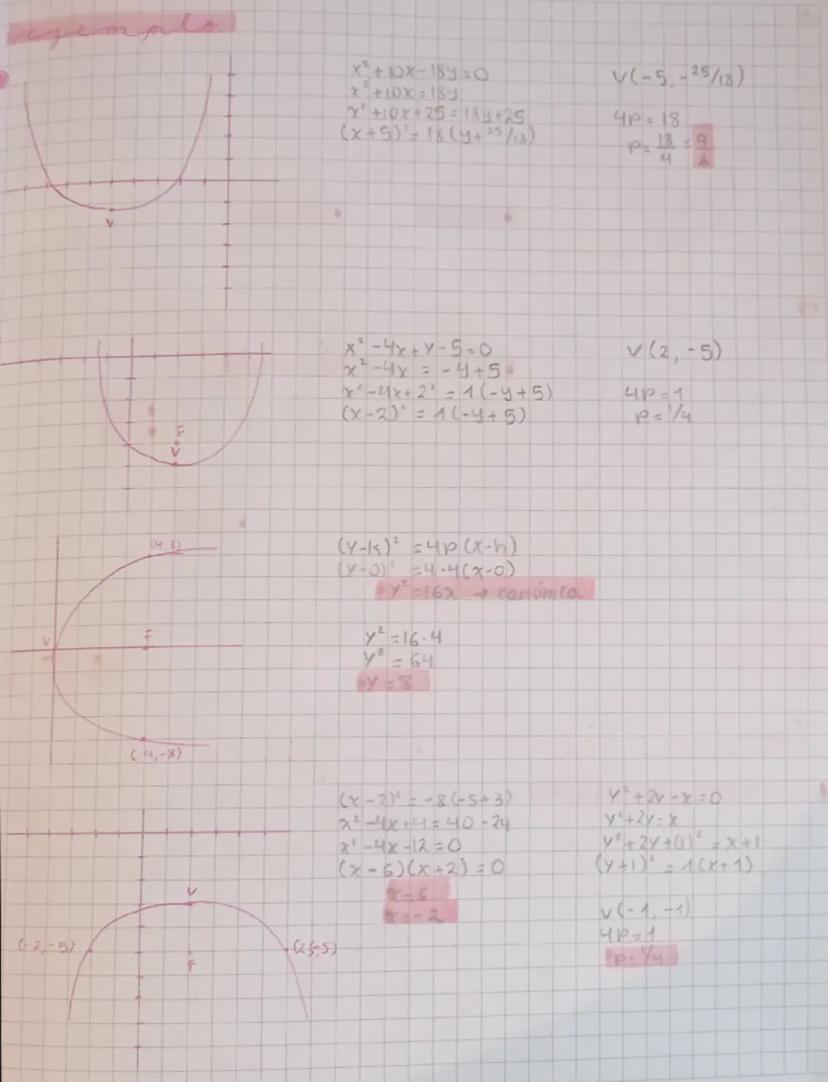 ejemplo
x² + 10x - 18y = 0
x² + 10x = 18y
x² + 10x + 25 = 18y + 25
(x + 5)² = 18(y + 25/18)
V(-5, -25/18)
4p = 18
p = 18/4 = 9/2
V
x² - 4x + y - 5 = 0
x² - 4x = -y + 5
x² - 4x + 2² = 1(-y + 5)
(x - 2)² = 1(-y + 5)
V(2, -5)
4p = 1
p = 1/4
F
V
(4,8)
V
F
(4,-8)
(y-k)² = 4p(x-h)
(y-0)² = 4·4(x-0)
y² = 16x → canónica
y² = 16·4
y² = 64
y = 8
(x-2)² = -8(-5+3)
x² - 4x + 4 = 40 - 24
x² - 4x - 12 = 0
(x-6)(x+2) = 0
x = 6
x = -2
y² + 2y - x = 0
y² + 2y = x
y² + 2y + (1)² = x + 1
(y+1)² = 1(x+1)
V(-1, -1)
4p = 1
p = 1/4
V
(-2,-5)
F